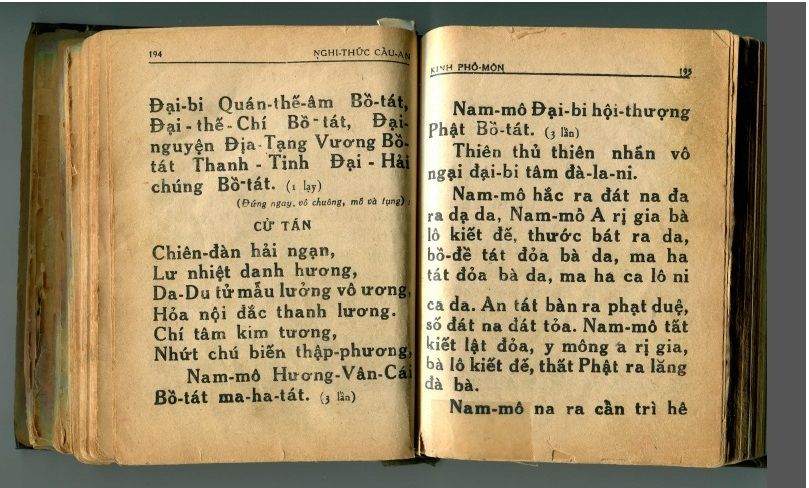 194 NGHI-THỨC CẦU-AN
Đại-bi Quán-thế-âm Bồ-tát,
Đại-thế-Chí Bồ-tát, Đại-
nguyện Địa-Tạng Vương Bồ-
tát Thanh-Tịnh Đại-Hải
chúng Bồ-tát. (1 lạy)
(Đứng ngay, vô chuông, mõ và tụng) :
CỬ TÁN
Chiên-đàn hải ngạn,
Lư nhiệt danh hương,
Da-Du tử mẫu lưởng vô ương,
Hỏa nội đắc thanh lương.
Chí tâm kim tương,
Nhứt chú biến thập-phương,
Nam-mô Hương-Vân-Cái
Bồ-tát ma-ha-tát. (3 lần)
KINH PHỔ-MÔN 195
Nam-mô Đại-bi hội-thượng
Phật Bồ-tát. (3 lần)
Thiên thủ thiên nhãn vô
ngại đại-bi tâm đà-la-ni.
Nam-mô hắc ra đát na đa
ra dạ da, Nam-mô A rị gia bà
lô kiết đế, thước bát ra da,
bồ-đề tát đỏa bà da, ma ha
tát đỏa bà da, ma ha ca lô ni
ca da. Án tát bàn ra phạt duệ,
số đát na đát tỏa. Nam-mô tất
kiết lật đỏa, y mông a rị gia,
bà lô kiết đế, thất Phật ra lăng
đà bà.
Nam-mô na ra cẩn trì hê